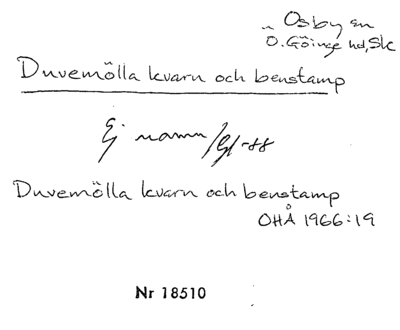 Osby sn
Ö. Göinge hd, Sk
Duvemölla kvarn och benstamp
Ej namn
-88
Duvemölla kvarn och benstamp
OHÅ 1966:19
Nr 18510